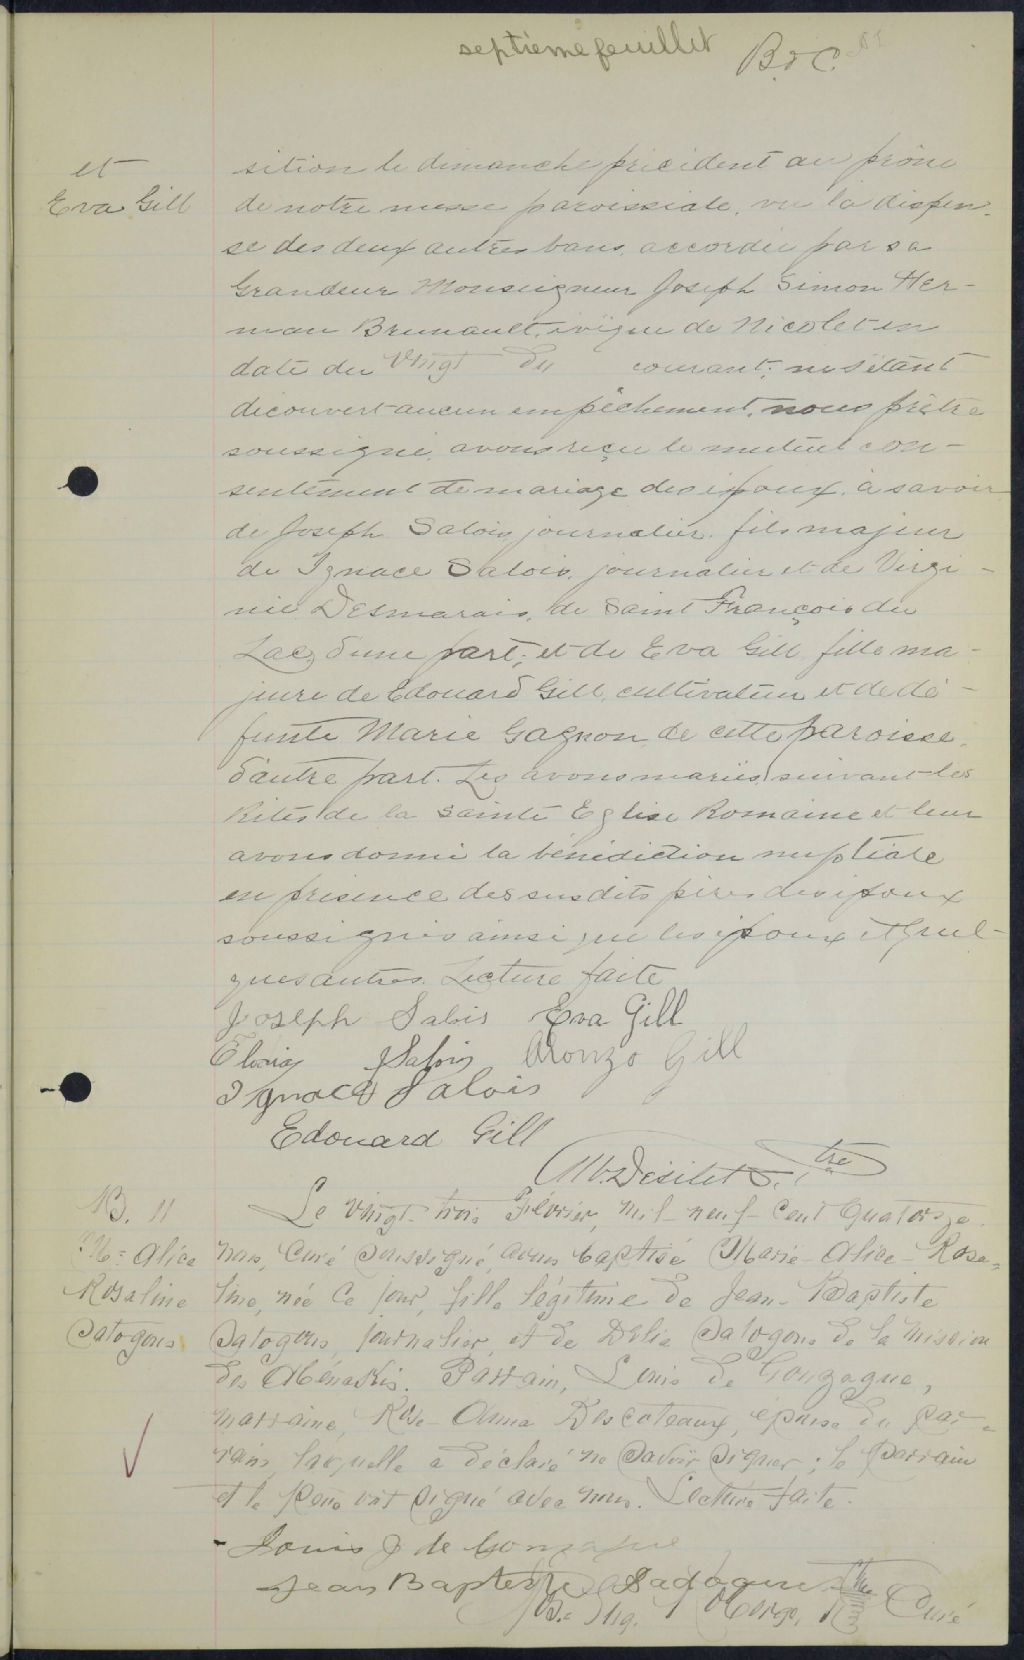 septième feuillet B. & C.
et
Eva Gill
sition le dimanche précédent au prône
de notre messe paroissiale, vu la dispen-
se des deux autres bans, accordée par sa
Grandeur Monseigneur Joseph Simon Her-
man Brunault, évêque de Nicolet en
date du vingt du courant; ne s'étant
découvert aucun empêchement, nous prêtre
soussigné, avons reçu le mutuel con-
sentement de mariage des époux, à savoir
de Joseph Salois, journalier, fils majeur
de Ignace Salois, journalier et de Virgi-
nie Desmarais, de Saint François du
Lac, d'une part; et de Eva Gill, fille ma-
jeure de Edouard Gill, cultivateur et de dé-
funte Marie Gagnon de cette paroisse,
d'autre part. Les avons mariés suivant les
Rites de la Sainte Eglise Romaine et leur
avons donné la bénédiction nuptiale
en présence des susdits pères des époux
soussignés ainsi que les époux et quel-
ques autres. Lecture faite
Joseph Salois Eva Gill
Salois Alonzo Gill
Ignace Salois
Edouard Gill
Désilets, Ptre
B. 11
M= Alice
Rosaline
Satogons
Le vingt-trois Février, mil-neuf-cent quatorze
nous, Curé soussigné, avons baptisé Marie-Alice-Rosa-
line, née ce jour, fille légitime de Jean-Baptiste
Satogons, journalier, et de Délia Satogons de la mission
des Abénakis. Parrain, Louis de Gonzague,
marraine, Rose-Anna Descoteaux, épouse du par-
rain, laquelle a déclaré ne savoir signer; le parrain
et le père ont signé avec nous. Lecture faite.
Louis J de Gonzague
Jean Baptiste Sadogons
Ptre Curé